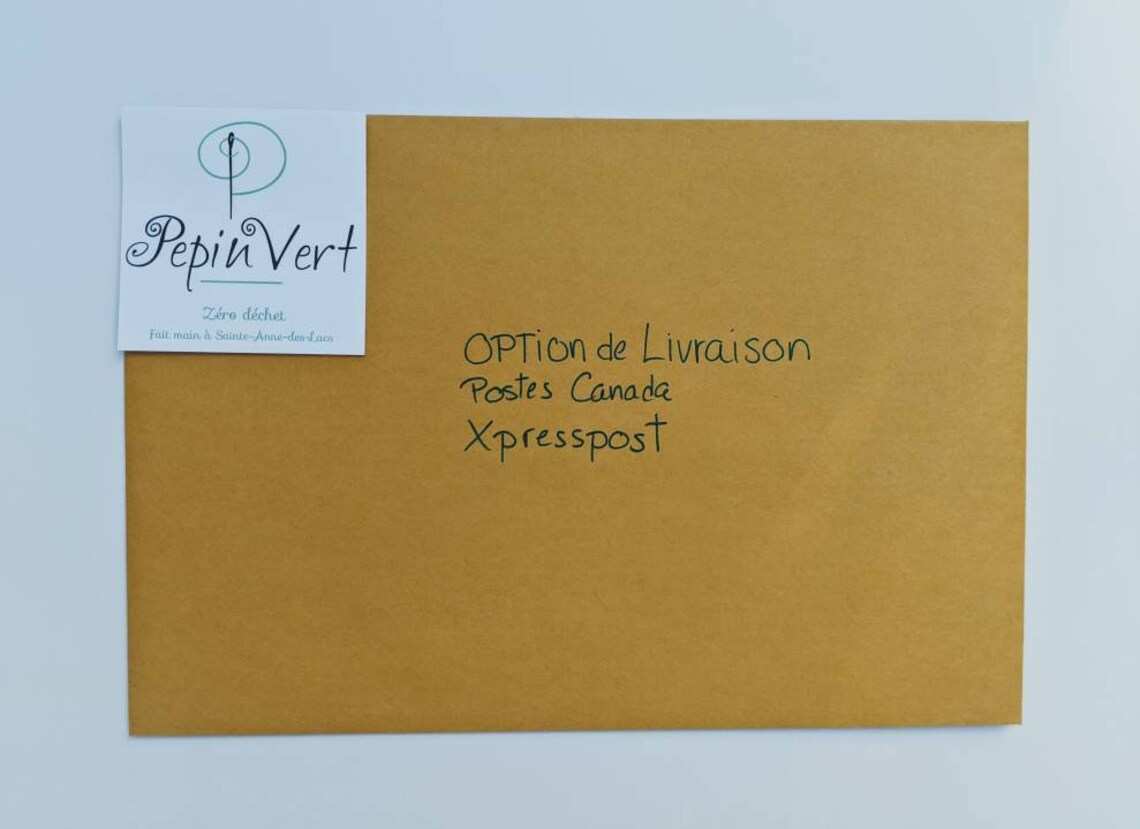 Pepin Vert
Zéro déchet
Fait main à Sainte-Anne-des-Lacs
OPTion de Livraison
Postes Canada
Xpresspost